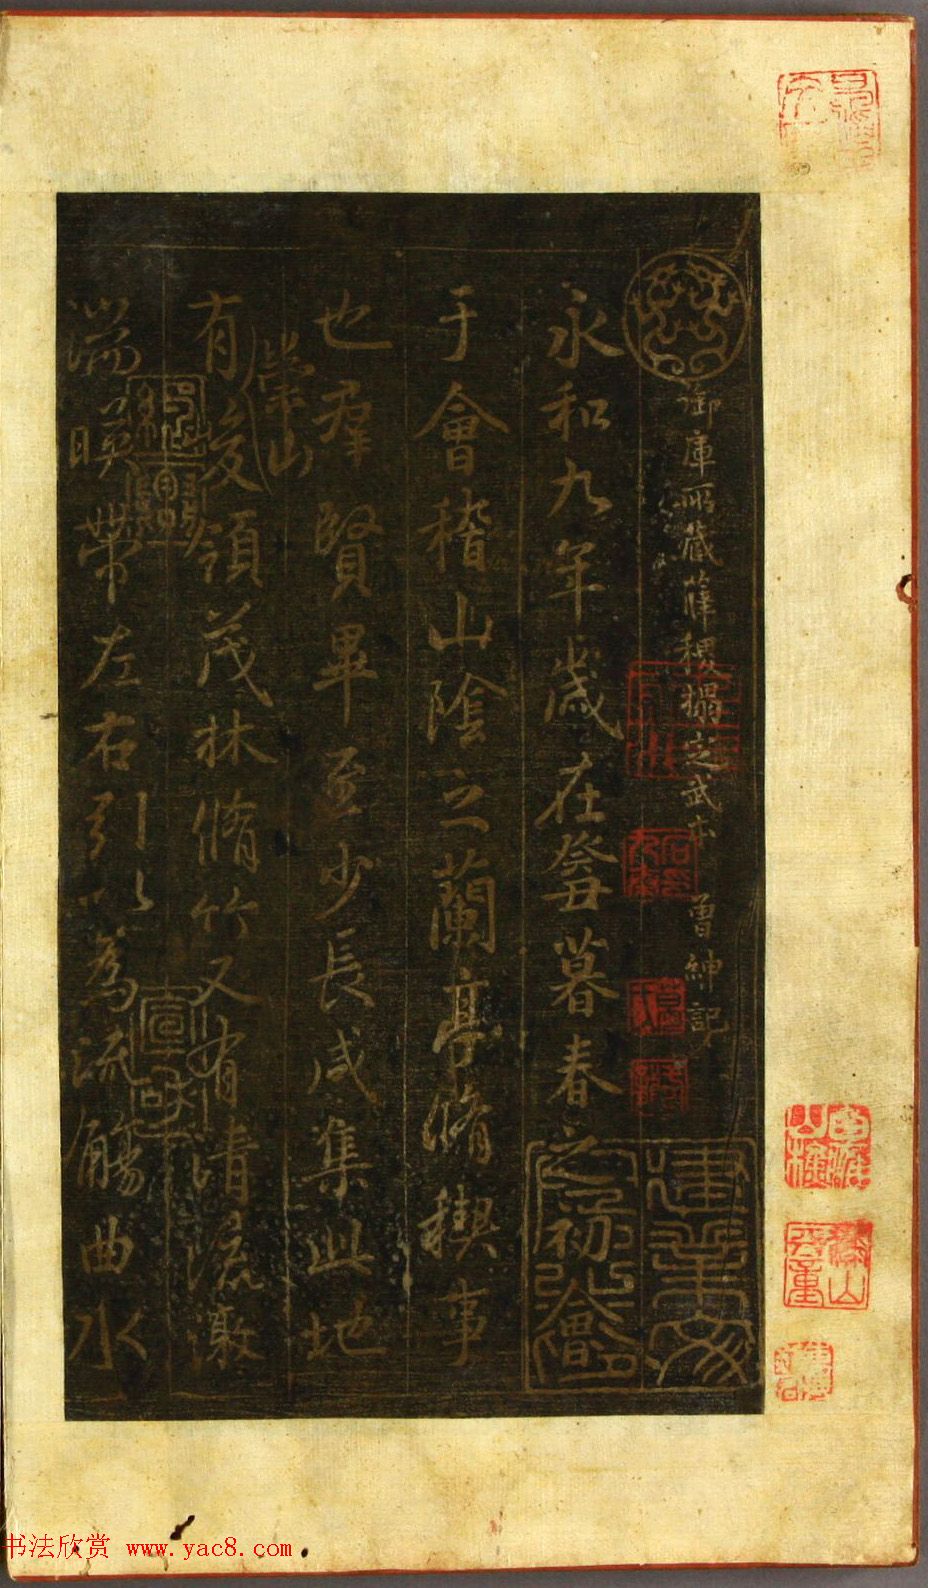 御庫所藏薛稷搨定武本 曾紳記
永和九年歲在癸丑暮春之初會
于會稽山陰之蘭亭脩稧事
也羣賢畢至少長咸集此地
崇山
有峻領茂林脩竹又有清流激
湍暎帶左右引以為流觴曲水
书法欣赏 www.yac8.com